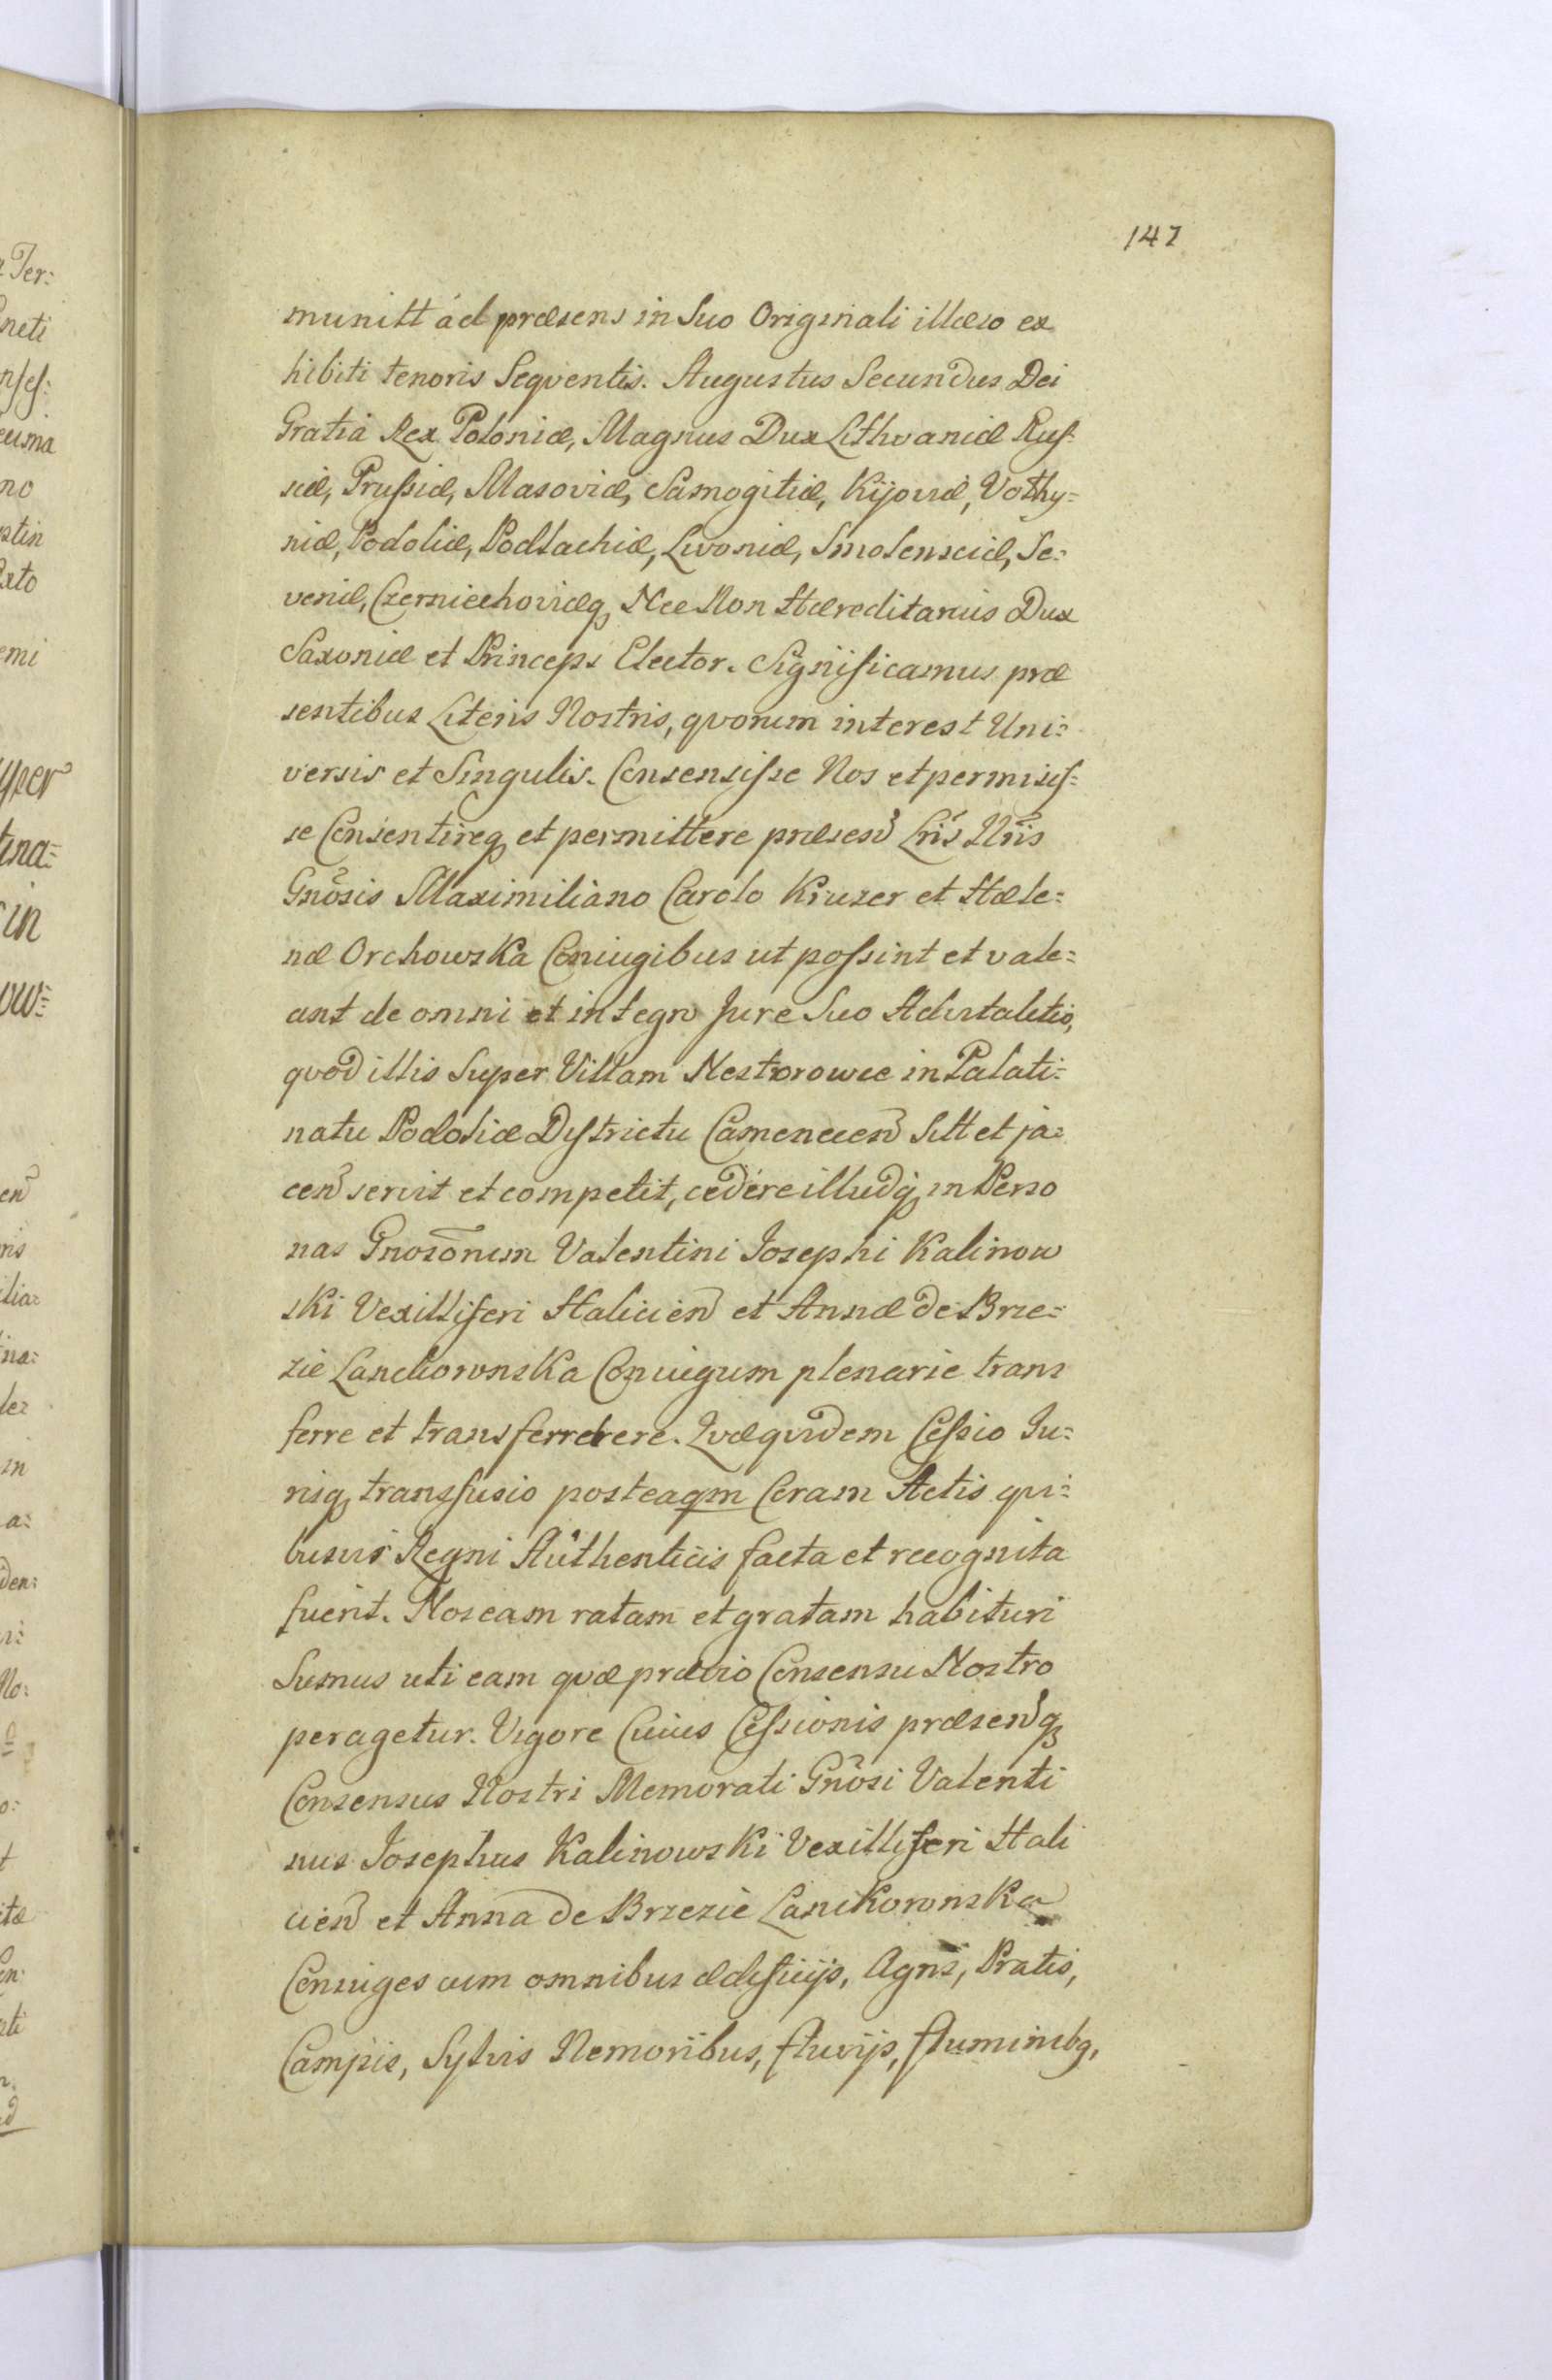 147
munitt ad præsens in Suo Originali illæso ex
hibiti tenoris Seqventis. Augustus Secundus Dei
Gratiâ Rex Poloniæ, Magnus Dux Lithvaniæ Rus=
siæ, Prussiæ, Masoviæ, Samogitiæ, Kijoviæ, Volhy=
niæ, Podoliæ, Podlachiæ, Livoniæ, Smolensciæ, Se=
veriæ, Czerniechoviæq Nec Non Hæreditarius Dux
Saxoniæ et Princeps Elector. Significamus præ
sentibus Literis Nostris, qvorum interest Uni=
versis et Singulis. Consensisse Nos et permisis=
se Consentireq et permittere præsen Lris Nris
Gnosis Maximiliano Carolo Kruzer et Hæle=
næ Orchowska Coniugibus ut possint et vale=
ant de omni et integro Jure Suo Advitalitio,
qvod illis Super Villam Nestorowce in Palati=
natu Podoliæ Districtu Camenecen Sitt et ja=
cen servit et competit, cedere illudq in Perso
nas Gnosorum Valentini Josephi Kalinow
ski Vexilliferi Halicien et Annæ de Brze=
zie Lanckoronska Coniugum plenarie trans
ferre et transferrere. Qvæ qvidem Cessio Ju=
risq transfusio posteaqm Coram Actis qvi=
busvis Regni Authenticis facta et recognita
fuerit. Nos eam ratam et gratam habituri
Sumus uti eam qvæ prævio Consensu Nostro
peragetur. Vigore Cuius Cessionis præsenq
Consensus Nostri Memorati Gnosi Valenti
nus Josephus Kalinowski Vexilliferi Hali
cien et Anna de Brzezie Lanckoronska
Coniuges cum omnibus ædificijs, Agris, Pratis,
Campis, Sylvis Nemoribus, fluvijs, fluminibq,